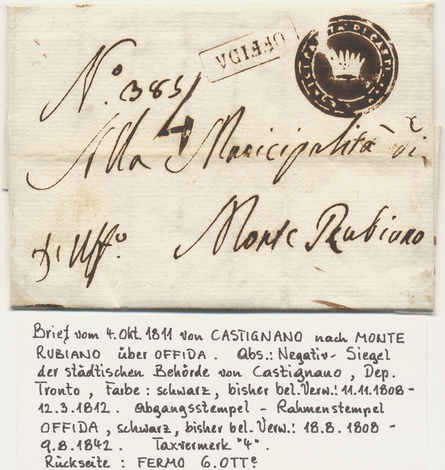 OFFIDA
N.º 385
4
Alla Municipalità di
Monte Rubiano
d'Uff.º
Brief vom 4. Okt. 1811 von CASTIGNANO nach MONTE
RUBIANO über OFFIDA. Abs.: Negativ- Siegel
der städtischen Behörde von Castignano, Dep.
Tronto, Farbe: schwarz, bisher bel. Verw.: 11.11.1808-
12.3.1812. Abgangsstempel - Rahmenstempel
OFFIDA, schwarz, bisher bel. Verw.: 18.8.1808-
9.8.1842. Taxvermerk "4".
Rückseite: FERMO 6. OTTe